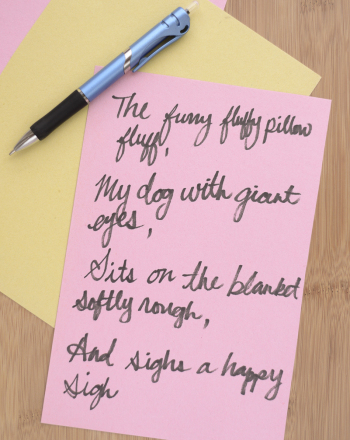 The furry fluffy pillow
fluff,
My dog with giant
eyes,
Sits on the blanket
softly rough,
And sighs a happy
sigh